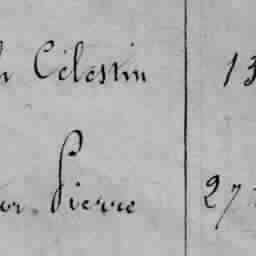 Célestin 13
Pierre 27